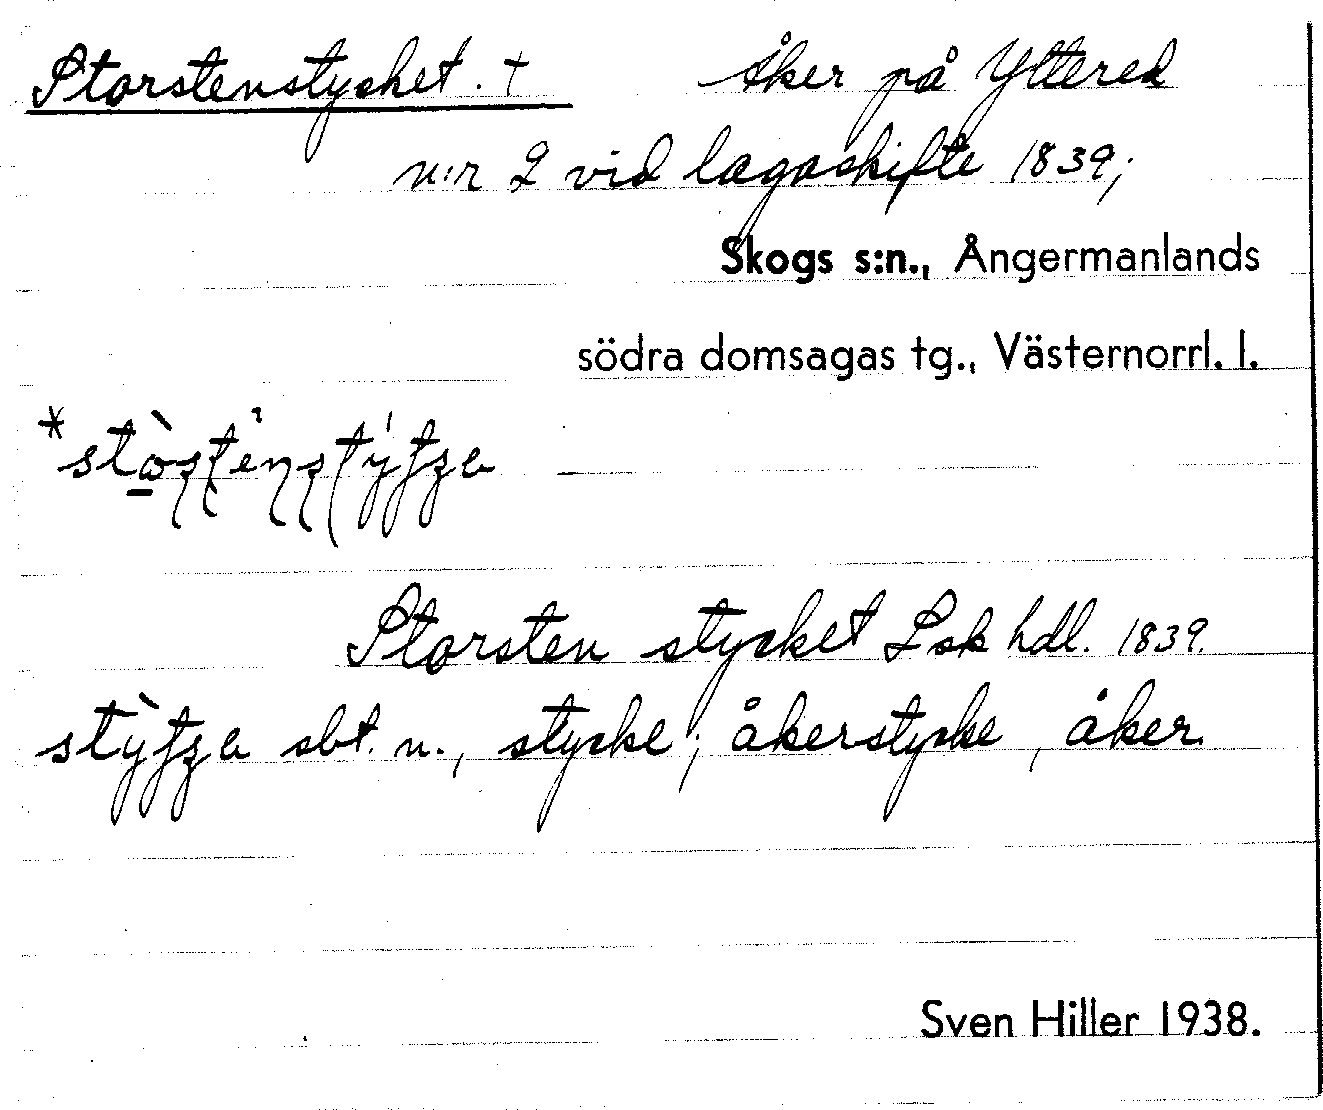 Storstenstycket. † Åker på Yttered
n:r 2 vid lagaskifte 1839;
Skogs s:n., Ångermanlands
södra domsagas tg., Västernorrl. l.
Storsten stycket Lsk hdl. 1839.
sbt. n., stycke; åkerstycke, åker.
Sven Hiller 1938.